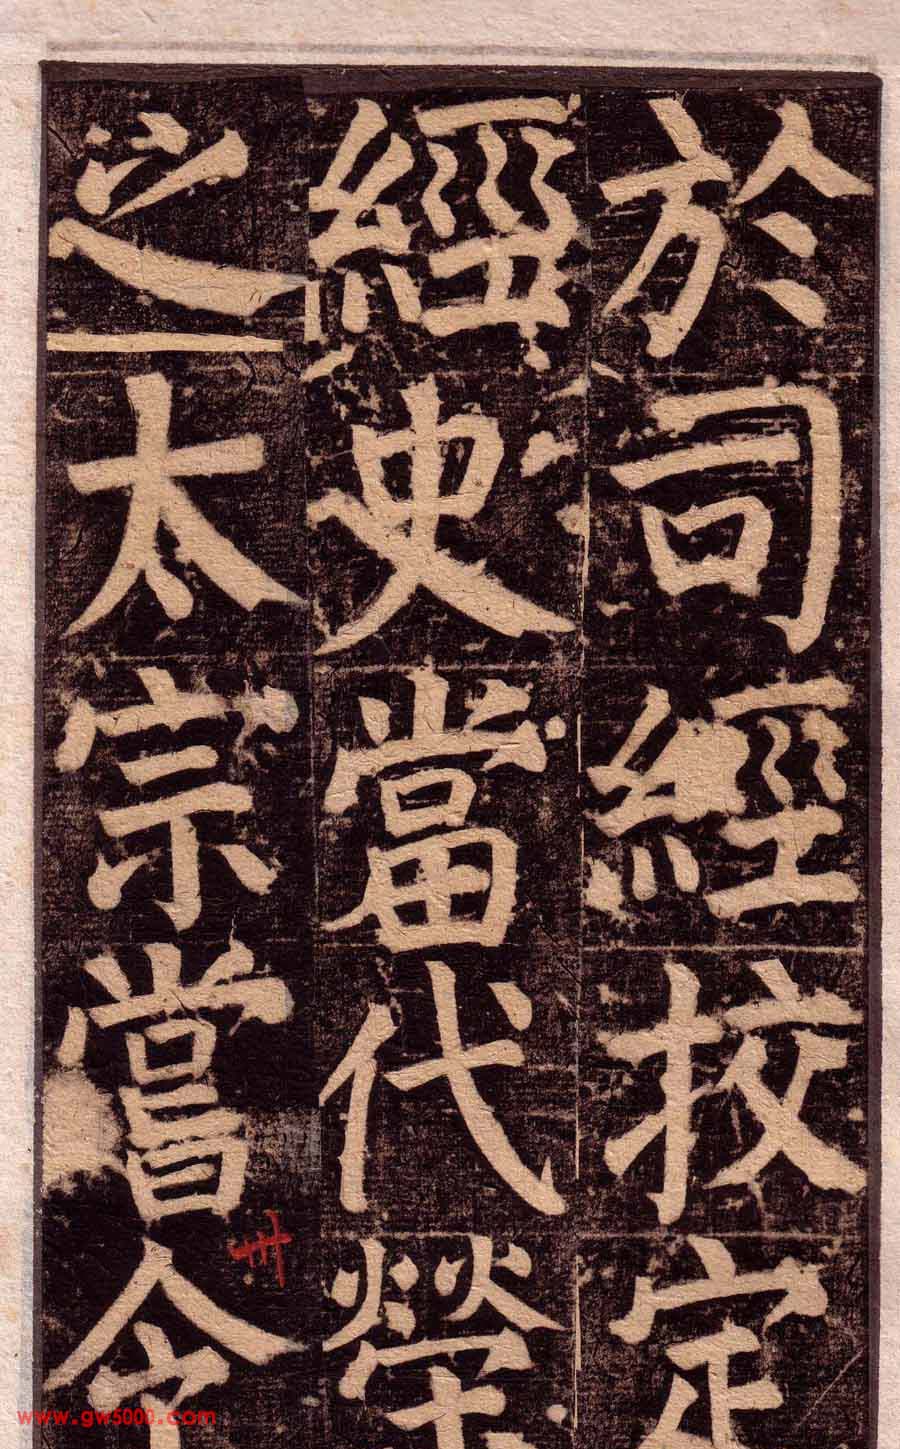 於司經挍定
經史當代榮
之太宗嘗令
www.gw5000.com